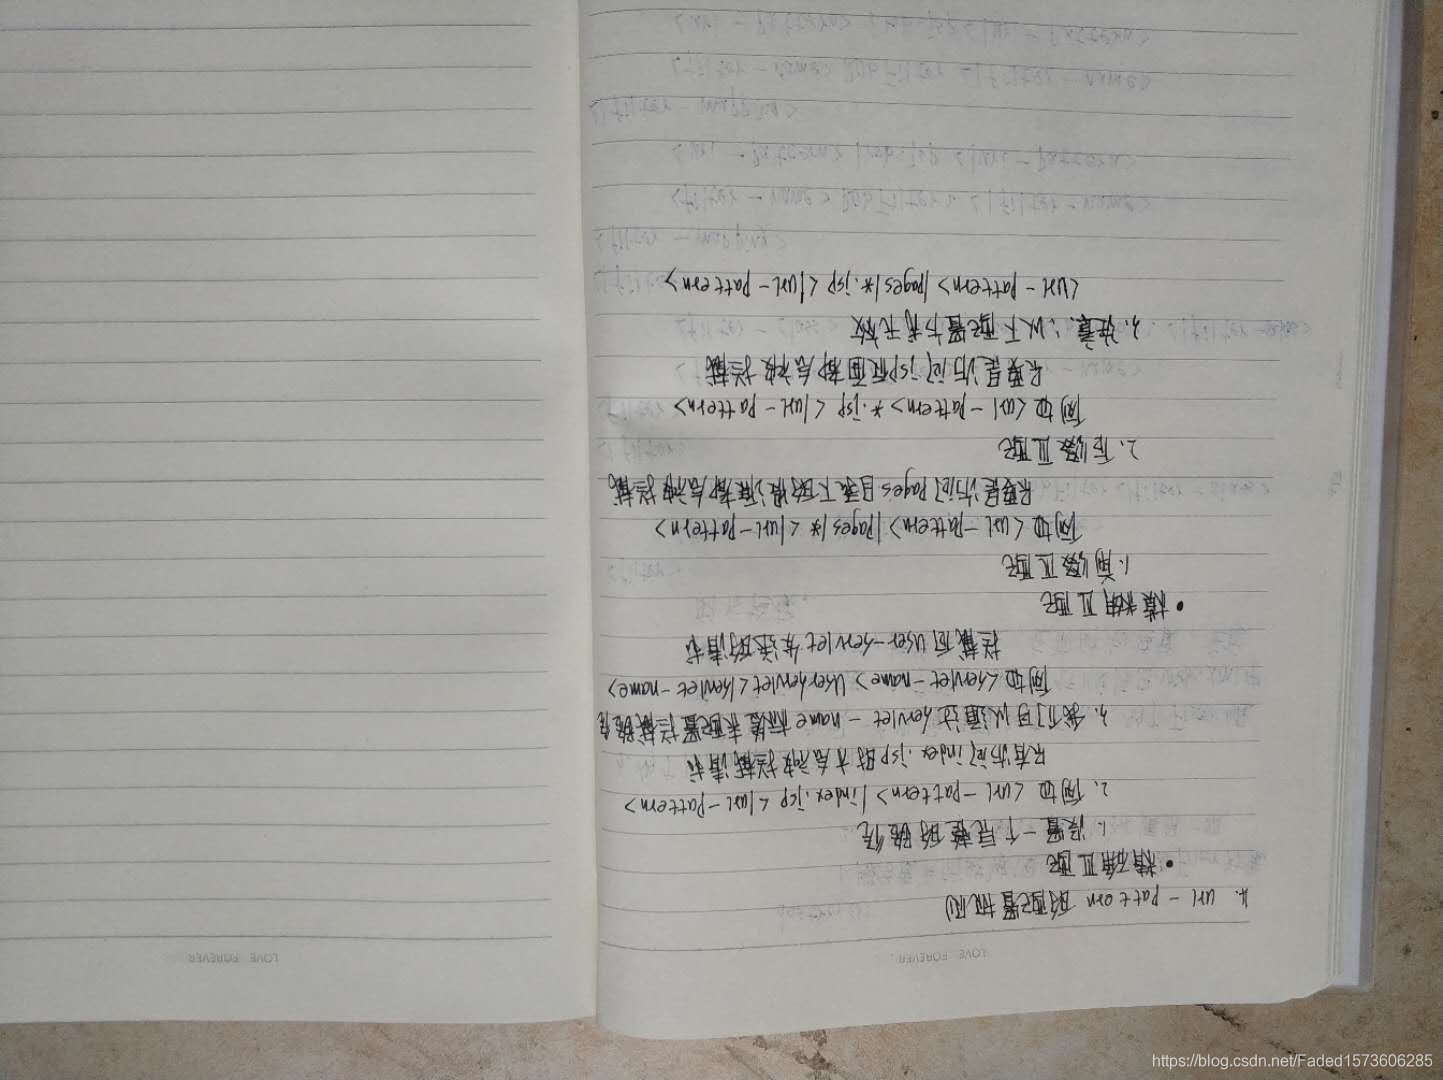 LOVE FOREVER.
4. url-pattern 的配置规则
• 精确匹配
1. 设置一个完整的路径
2. 例如 <url-pattern>/index.jsp</url-pattern>
只有访问index.jsp时才会被拦截请求
3. 我们可以通过servlet-name标签来配置拦截路径
例如<servlet-name>UserServlet</servlet-name>
拦截向User-Servlet发送的请求
• 模糊匹配
1. 前缀匹配
例如<url-pattern>/pages/*</url-pattern>
只要是访问Pages目录下的资源都会被拦截
2. 后缀匹配
例如<url-pattern>*.jsp</url-pattern>
只要是访问jsp页面都会被拦截
3. 注意：以下配置方式无效
<url-pattern>/pages/*.jsp</url-pattern>
LOVE FOREVER
https://blog.csdn.net/Faded1573606285